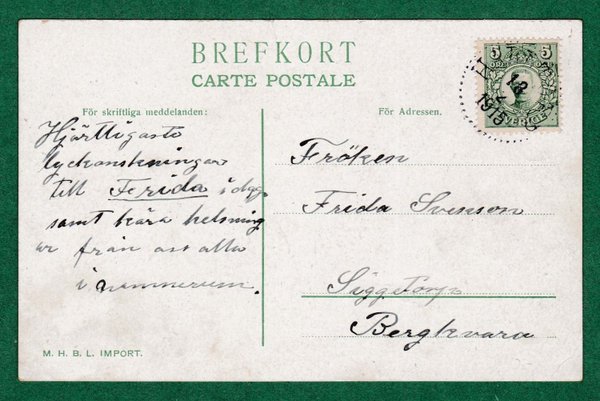 BREFKORT
CARTE POSTALE
För skriftliga meddelanden:
För Adressen.
5 5
SVERIGE
1915
Hjärtligaste
lyckönskningar
till Frida i dag
samt kära helsning
ar från oss alla
i
Fröken
Frida Svenson
Siggetorp
Bergkvara
M. H. B. L. IMPORT.